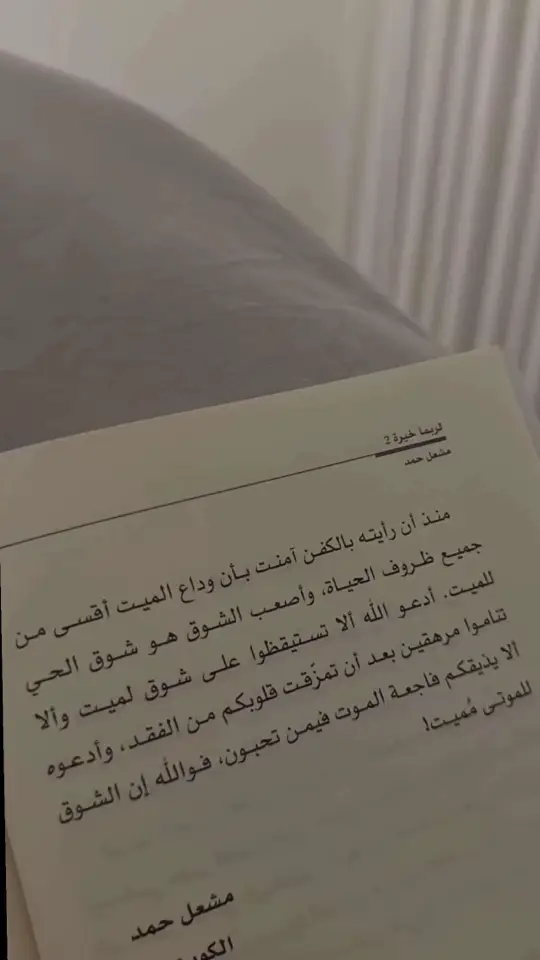 لربما خيرة 2
مشعل حمد
منذ أن رأيته بالكفن آمنت بأن وداع الميت أقسى من
جميع ظروف الحياة، وأصعب الشوق هو شوق الحي
للميت. أدعو الله ألا تستيقظوا على شوق لميت وألا
تناموا مرهقين بعد أن تمزّقت قلوبكم من الفقد، وأدعوه
ألا يذيقكم فاجعة الموت فيمن تحبون، فوالله إن الشوق
للموتى مُميت!
مشعل حمد